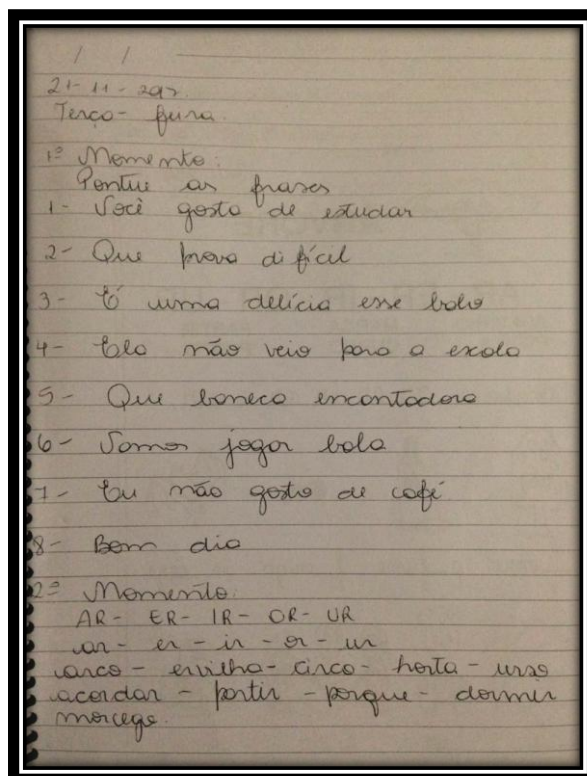 / /
21-11-2017
Terça-feira.
1º Momento:
Pontue as frases
1- Você gosta de estudar
2- Que prova difícil
3- É uma delícia esse bolo
4- Ela não veio para a escola
5- Que boneca encantadora
6- Vamos jogar bola
7- Eu não gosto de café
8- Bom dia
2º Momento.
AR- ER- IR- OR- UR
ar- er - ir - or - ur
arco - ervilha - circo - horta - urso
acordar - partir - porque - dormir
morcego.